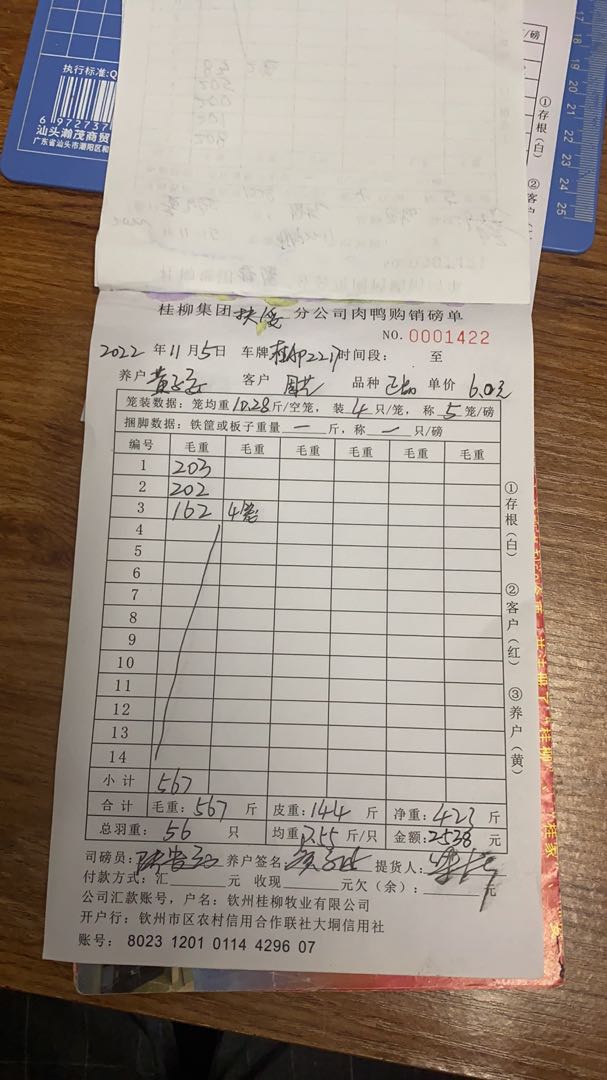 执行标准:Q
汕头瀚茂商贸
广东省汕头市潮阳区和
17
18
19
20
21
22
23
24
25
/磅
①存根(白)
②客户
桂柳集团扶绥分公司肉鸭购销磅单
NO.0001422
2022年11月5日 车牌 时间段: 至
养户 黄 客户 品种 正品 单价 6.0元
笼装数据:笼均重10.28斤/空笼,装4只/笼,称5笼/磅
捆脚数据:铁筐或板子重量一斤,称一只/磅
编号 毛重 毛重 毛重 毛重 毛重 毛重
1 203
2 202
3 162 4笼
4
5
6
7
8
9
10
11
12
13
14
小计 567
合计 毛重:567斤 皮重:144斤 净重:423斤
总羽重:56只 均重7.55斤/只 金额:2538元
司磅员: 养户签名: 提货人:
付款方式:汇 元 收现 元欠(余): 元
公司汇款账号,户名:钦州桂柳牧业有限公司
开户行:钦州市区农村信用合作联社大垌信用社
账号:8023 1201 0114 4296 07
①存根(白)
②客户(红)
③养户(黄)